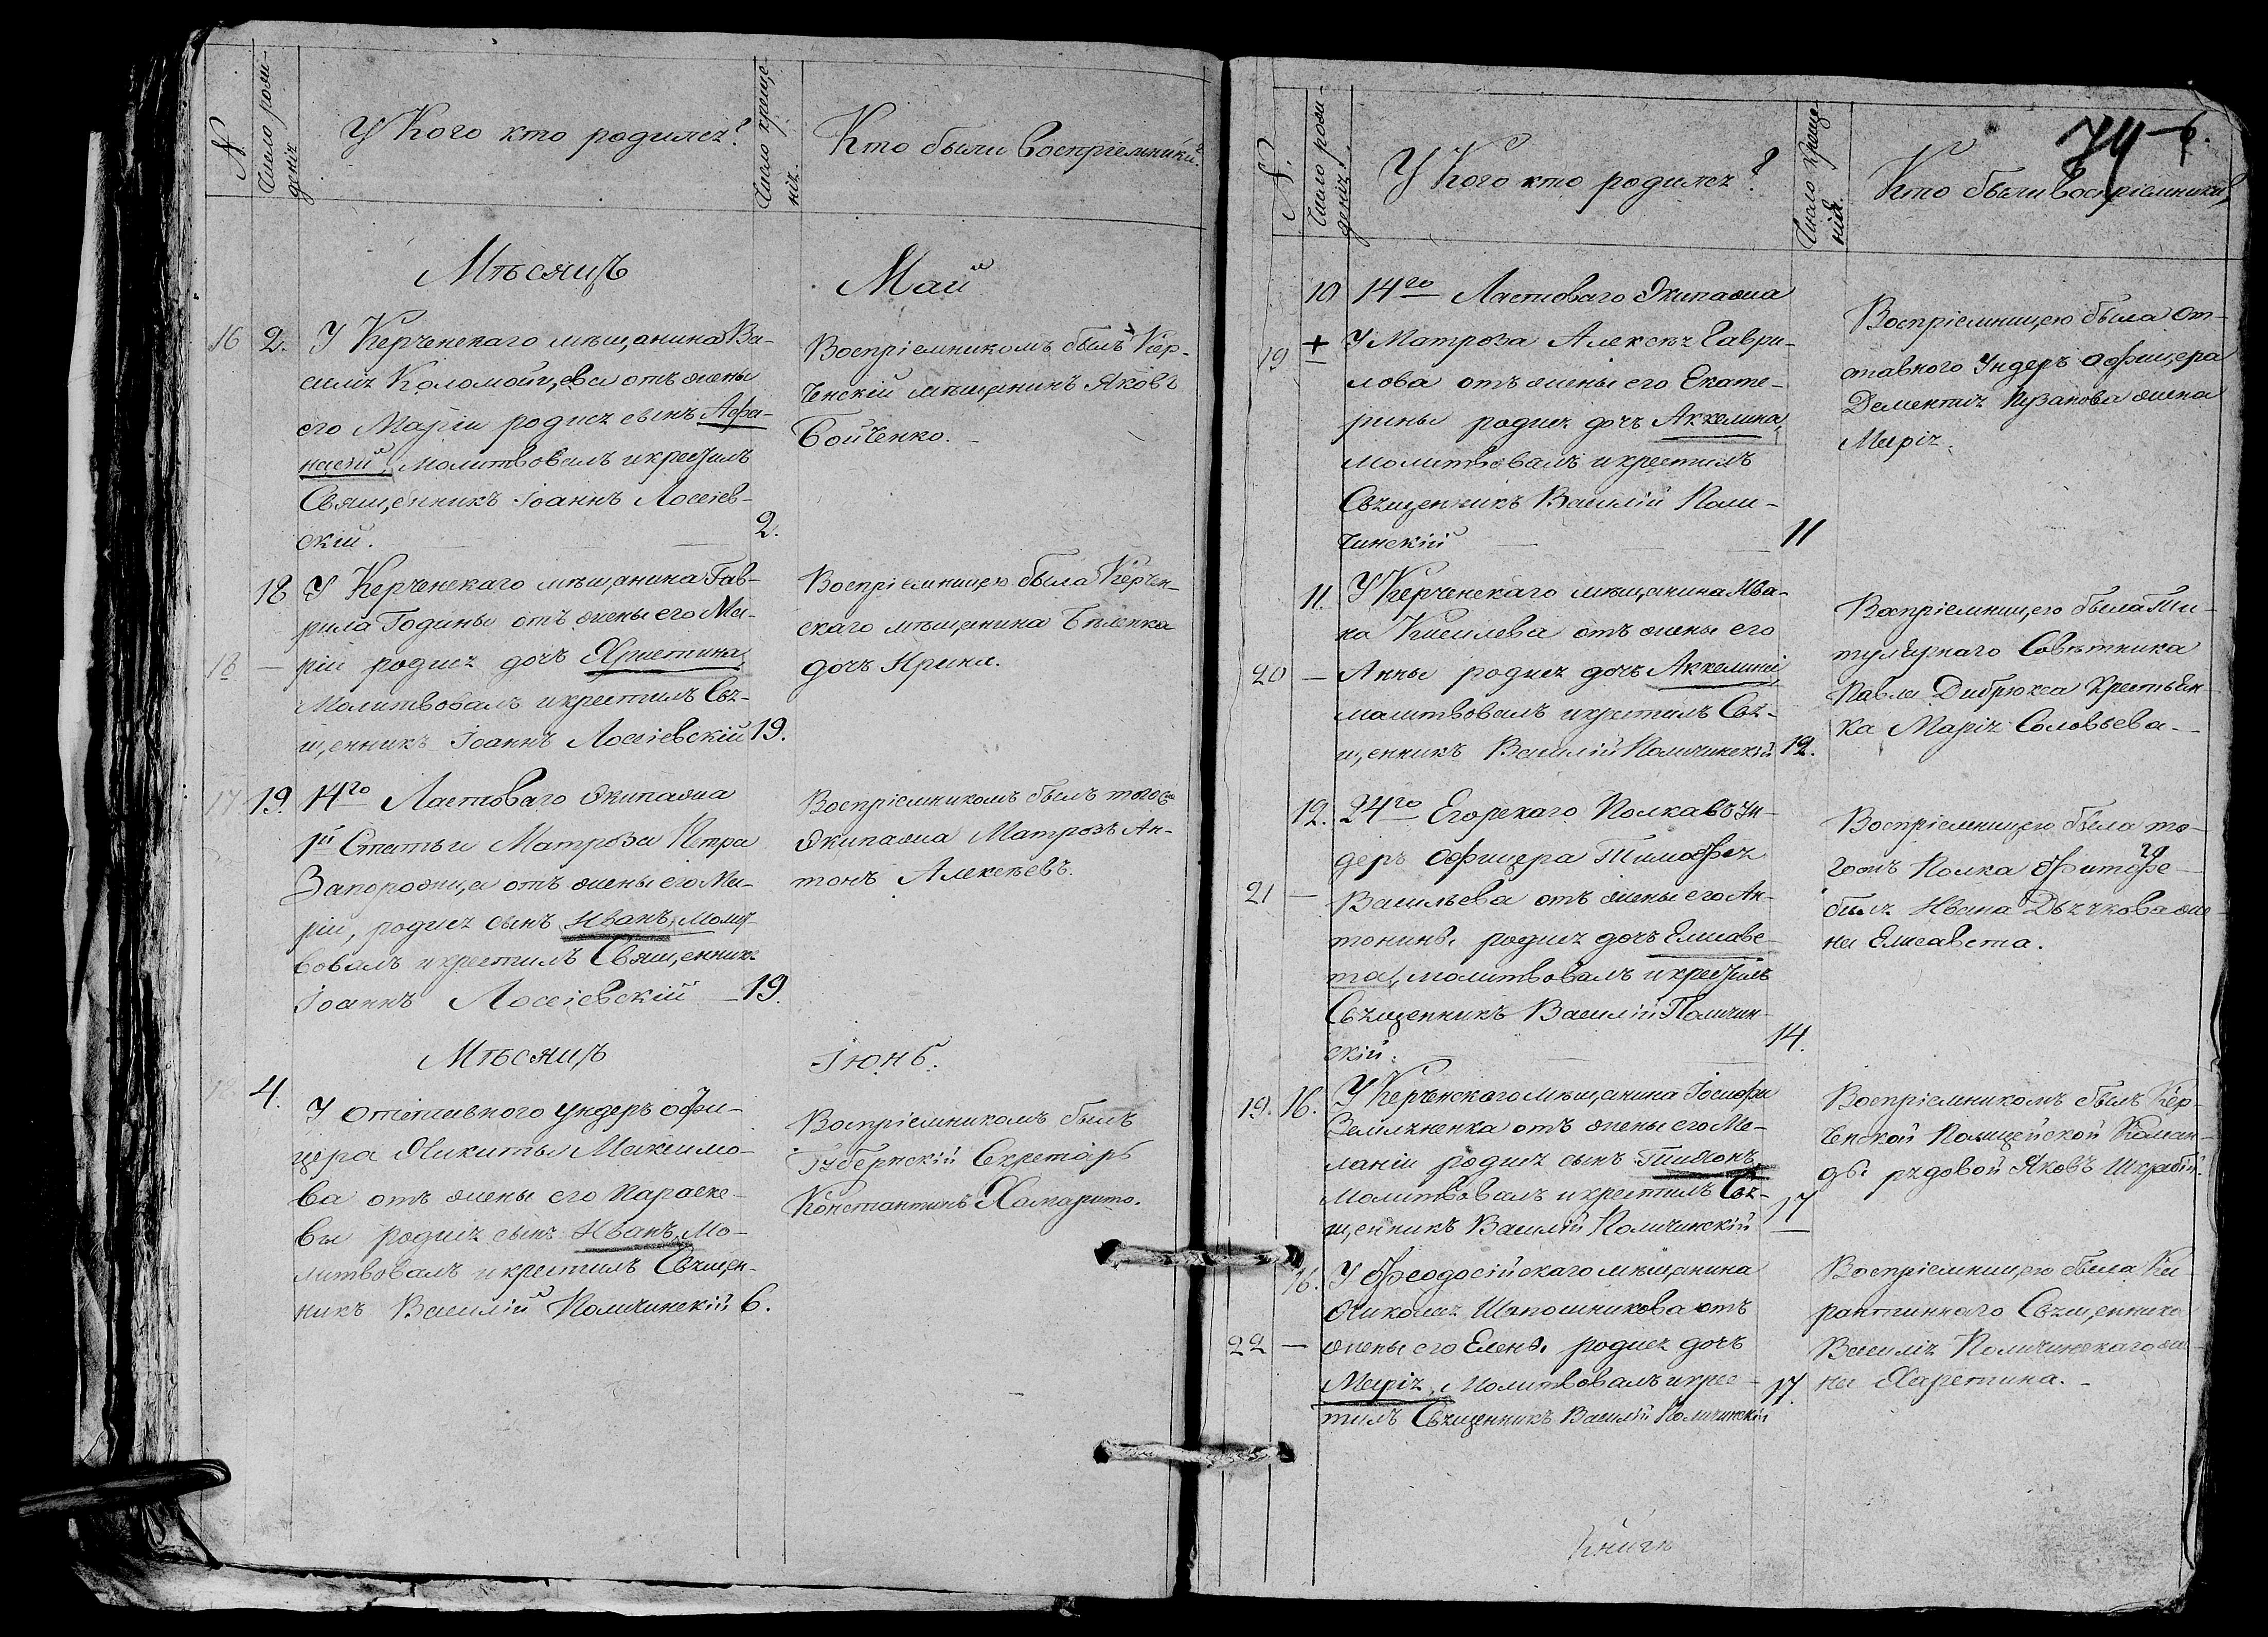 №
Число рожденія
У Кого кто родился?
Число крещенія.
Кто были воспріемники?
Мѣсяцъ
Май
16
2.
У Керченскаго мѣщанина Ва-
силія Коломойцева отъ жены
его Маріи родися сынъ Афа-
насій, молитвовалъ и крестилъ
Священникъ Іоаннъ Лосіев-
скій.
2.
Воспріемникомъ былъ Кер-
ченскій мѣщанинъ Яковъ
Бойченко.
18
18
У Керченскаго мѣщанина Гав-
рила Годины отъ жены его Ма-
ріи родися дочь Христина,
Молитвовалъ и крестилъ Свя-
щенникъ Іоаннъ Лосіевскій
19.
Воспріемницею была Керчен-
скаго мѣщанина Бѣленка
дочь Ирина.
17
19.
14го Ластоваго Экипажа
1й Статьи Матроза Петра
Запорожца отъ жены его Ма-
ріи, родися сынъ Иванъ, молит
вовалъ и крестилъ Священникъ
Іоаннъ Лосіевскій
19.
Воспріемникомъ былъ тогожъ
Экипажа Матрозъ Ан-
тонъ Алексѣевъ.
Мѣсяцъ
Іюнь.
4.
У отставного ундеръ офи-
цера Никиты Максимо-
ва отъ жены его Параске-
вы родися сынъ Иванъ, Мо-
литвовалъ и крестилъ Священ-
никъ Василій Поличинскій
6.
Воспріемникомъ былъ
Губернскій Секретарь
Константинъ Хамарито.
74
6.
№.
Число рожденія.
У Кого кто родился?
Число Крещенія.
Кто были воспріемники?
10
14го Ластоваго Экипажа
19
У Матроза Алексѣя Гаври-
лова отъ жены его Екате-
рины родися дочь Аккелина,
молитвовалъ и крестилъ
Священникъ Василій Поли-
чинскій
11
Воспріемницею была от-
ставного Ундеръ офицера
Дементія Пузанова жена
Марія.
11.
20
У Керченскаго мѣщанина Ива-
на Киселева отъ жены его
Анны родися дочь Аккелинія,
молитвовалъ и крестилъ Свя-
щенникъ Василій Поличинскій
12.
Воспріемницею была Ти-
тулярнаго Совѣтника
Павла Дибрюкса Крестьян-
ка Марія Соловьева.
12.
21
24го Егорскаго Полка въ Ун-
деръ Офицера Тимофея
Васильева отъ жены его Ан-
тонины родися дочь Елисаве-
та, молитвовалъ и крестилъ
Священникъ Василій Поличин-
скій.
14.
Воспріемницею была то-
гожъ Полка
Ивана Дьячкова же-
на Елисавета.
19.
16.
У Керченскаго мѣщанина Іосифа
отъ жены его Ме-
ланіи родися сынъ Тихонъ,
Молитвовалъ и крестилъ Свя-
щенникъ Василій Поличинскій
17
Воспріемникомъ былъ Кер-
ченской Полицейской Коман-
ды рядовой Яковъ
16.
22
У Феодосійскаго мѣщанина
Николая Шапошникова отъ
жены его Елены родися дочь
Марія, Молитвовалъ и крес-
тилъ Священникъ Василій Поличинскій
17.
Воспріемницею была Ка-
рантиннаго Священника
Василія Поличинскаго же-
на Харетина.